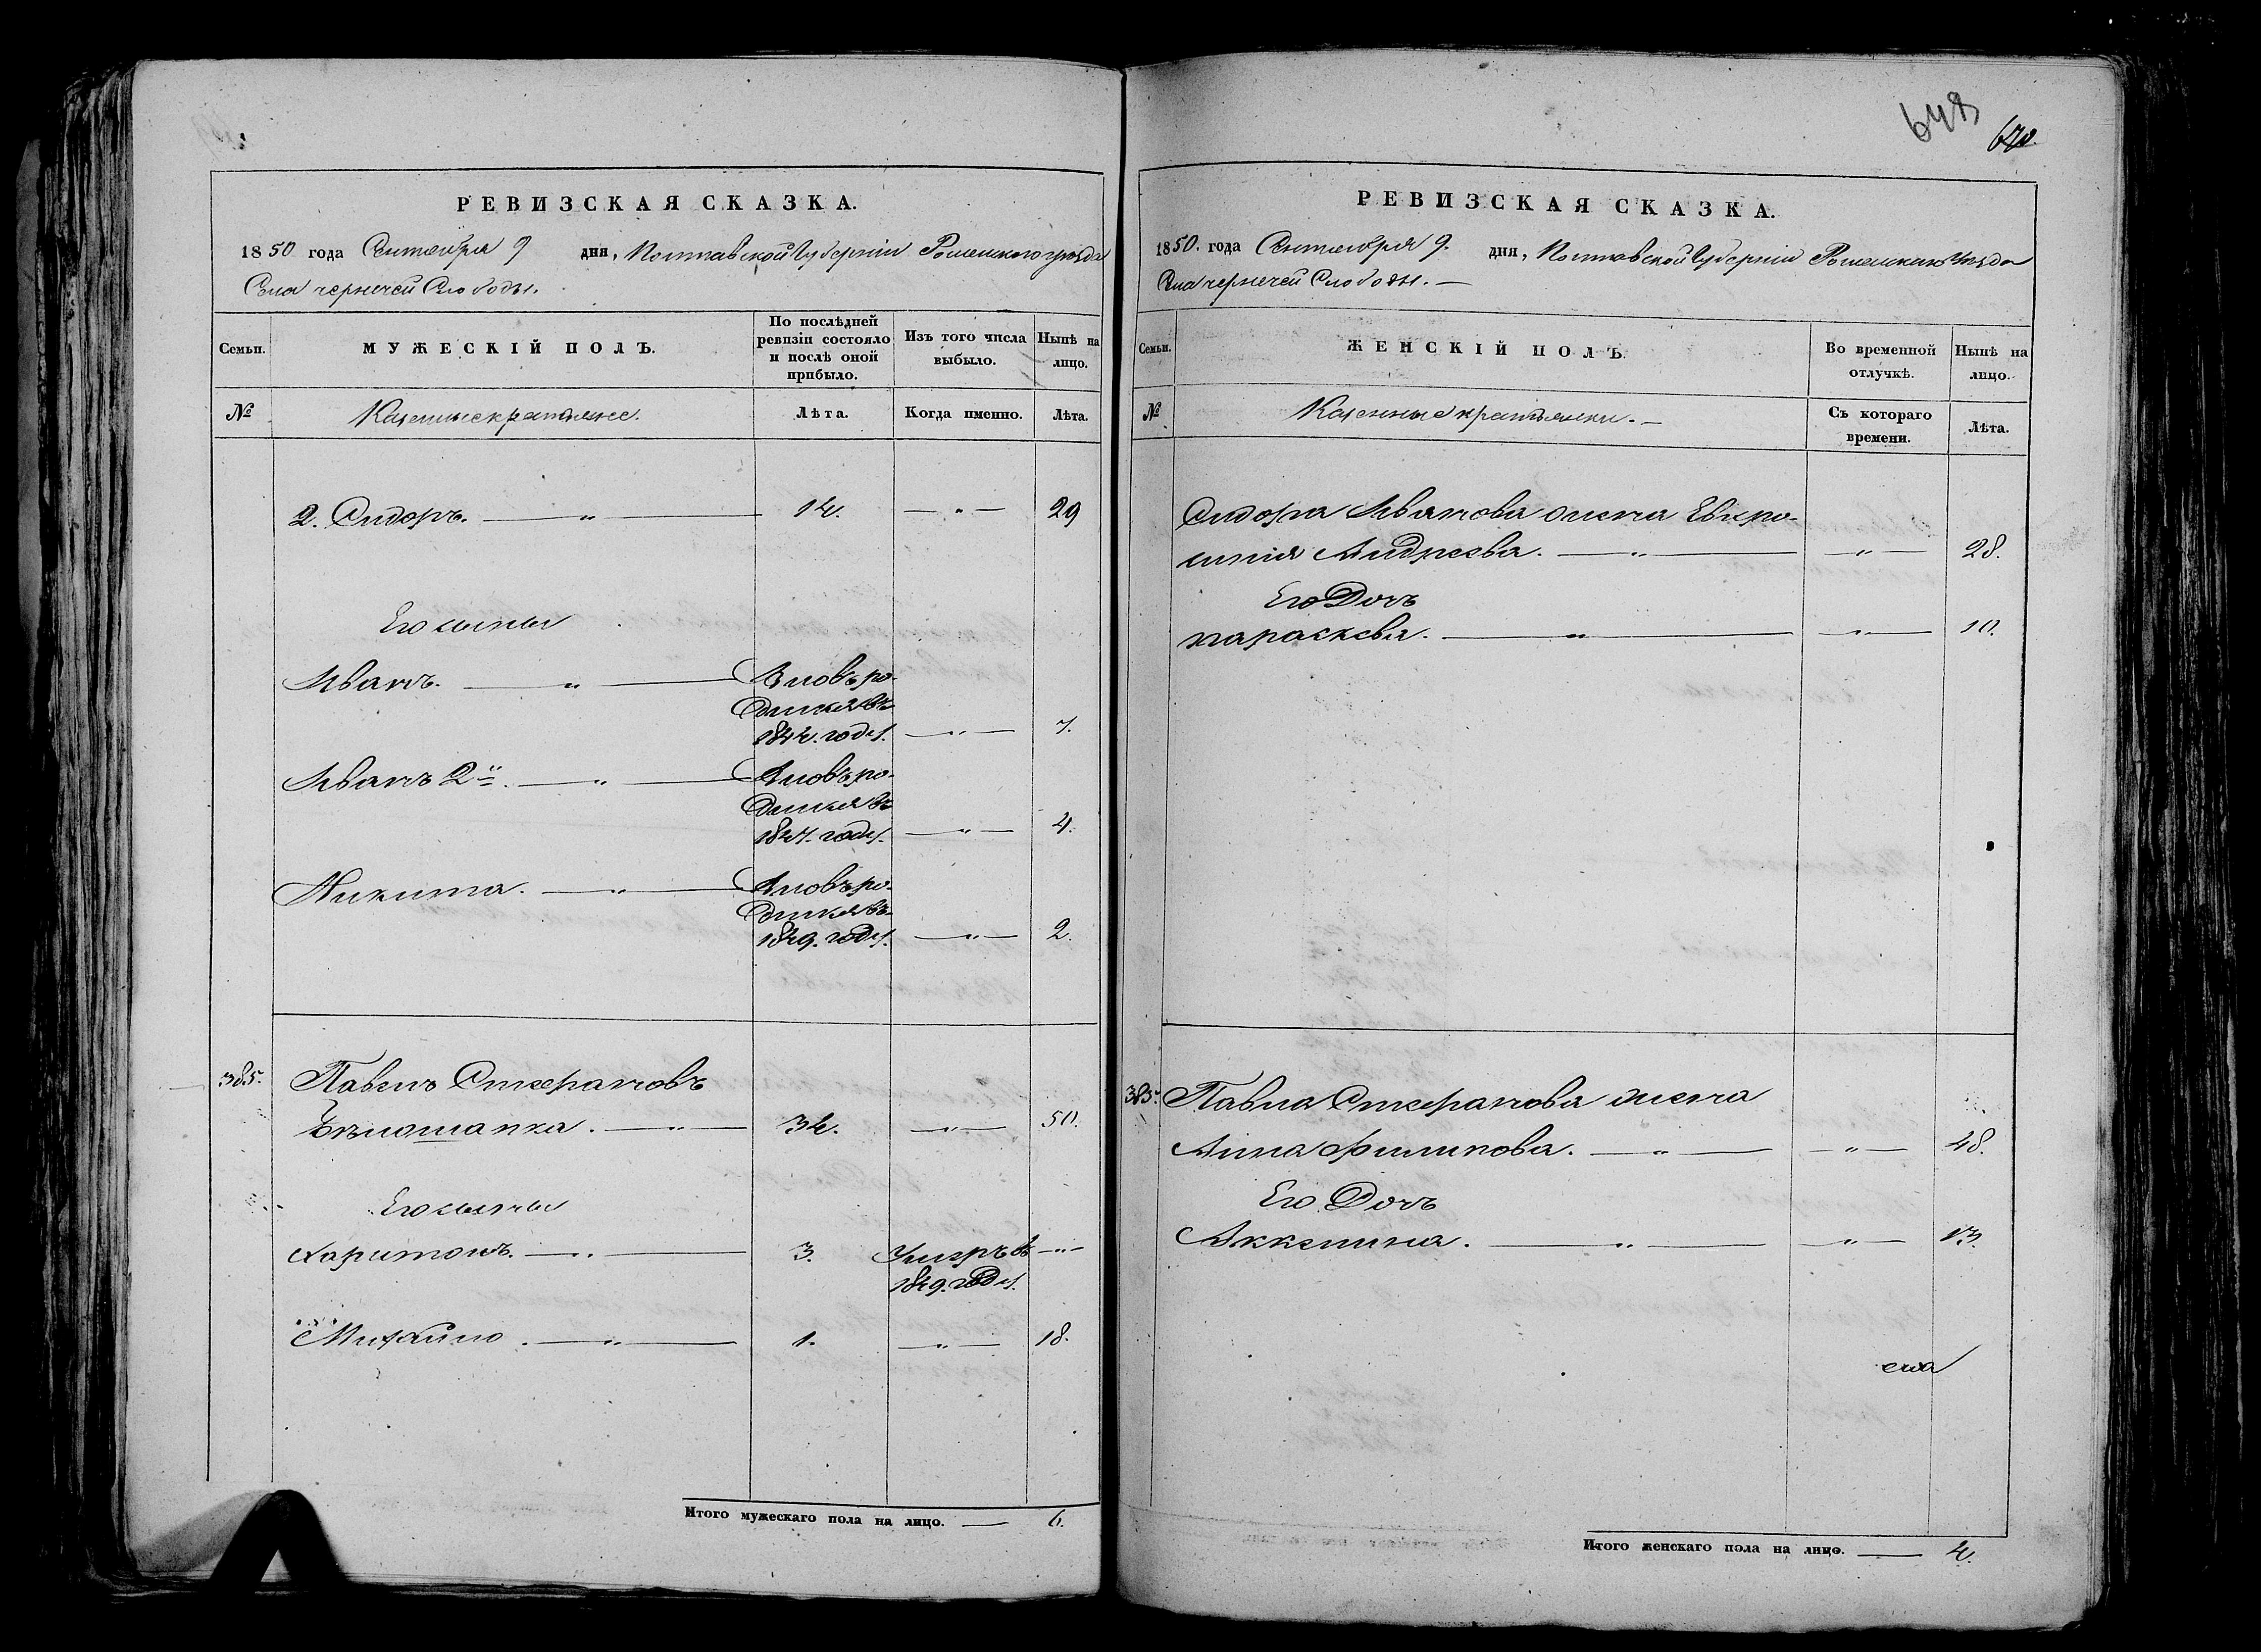 648
РЕВИЗСКАЯ СКАЗКА.
1850 года Сентября 9 дня, Полтавской Губерніи Роменского уѣзда
Села чернечей Слободы.
Семьи.
МУЖЕСКІЙ ПОЛЪ.
По послѣдней ревизіи состояло и послѣ оной прибыло.
Изъ того числа выбыло.
Нынѣ на лицо.
№
Казенные крестьяне.
Лѣта.
Когда именно.
Лѣта.
2. Сидоръ. — " — 14. — " — 29
Его сыны
Иванъ. — " — Вновь ро-
дился въ
1844. году. — " — 7.
Иванъ 2й. — " — Вновь ро-
дился въ
1847. году. — " — 4.
Никита. — " — Вновь ро-
дился въ
1849. году. — " — 2.
385. Павелъ Стефановъ
Бѣлошапка. — " — 34. — " — 50.
Его сыны
Харитонъ. — " — 3. Умеръ въ — " —
1849. году.
Михайло. — " — 1. — " — 18.
Итого мужескаго пола на лицо. — 6.
РЕВИЗСКАЯ СКАЗКА.
1850. года Сентября 9. дня, Полтавской Губерніи Роменскаго Уѣзда
Села чернечей Слободы. —
Семьи.
ЖЕНСКІЙ ПОЛЪ.
Во временной отлучкѣ.
Нынѣ на лицо.
№
Казенные крестьянки. —
Съ котораго времени.
Лѣта.
Сидора Иванова жена Евфро-
синія Андреева. — " — — " — 28.
Его Дочь
параскева. — " — — " — 10.
385. Павла Стефанова жена
Анна филипова. — " — — " — 48.
Его Дочь
Аксенина. — " — — " — 13.
Итого женскаго пола на лицо. — 4.